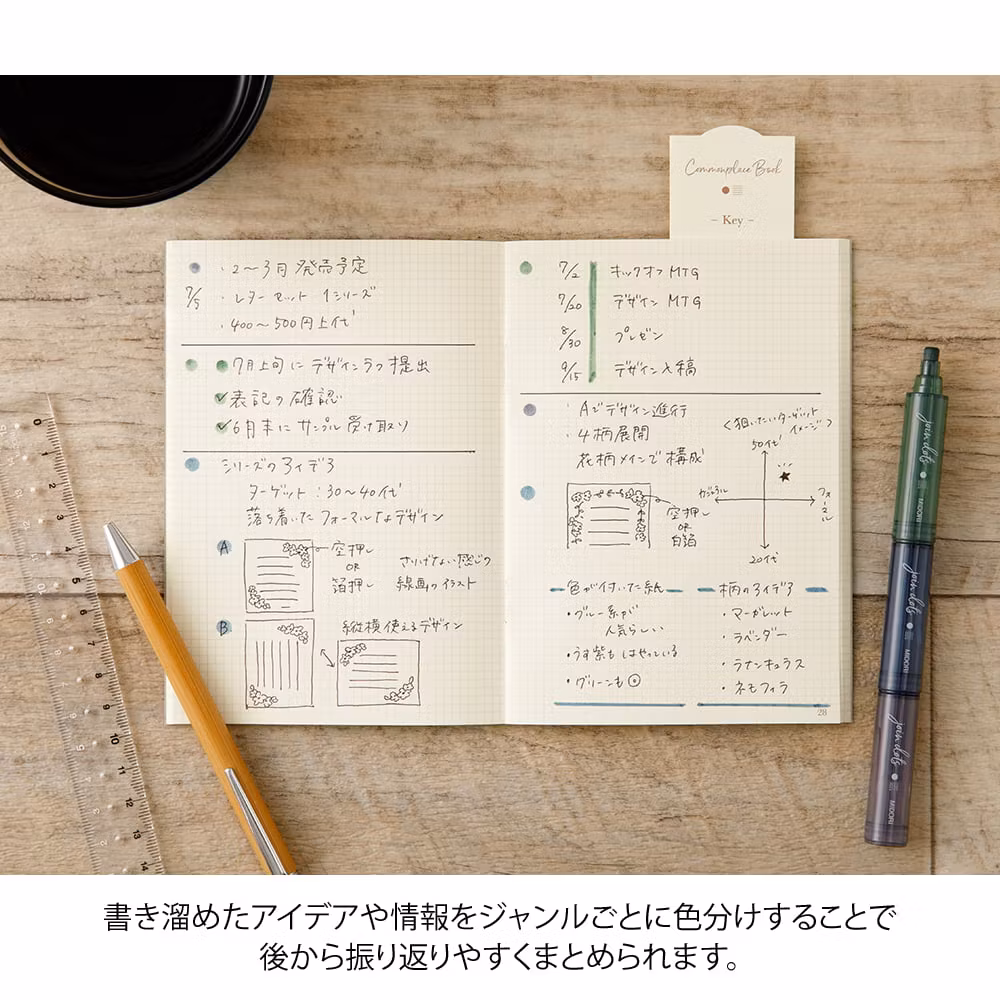 Commonplace Book
– Key –
・2〜3月 発売予定
7/5
・レターセット 1シリーズ
・400〜500円上代
7月上旬に デザインラフ提出
✓表記の確認
✓6月末に サンプル受け取り
シリーズのアイデア
ターゲット：30〜40代
落ち着いたフォーマルなデザイン
A
空押し
OR
箔押し
さりげない感じの
線画のイラスト
B
縦横使えるデザイン
7/2 キックオフMTG
7/20 デザインMTG
8/30 プレゼン
9/15 デザイン入稿
・Aでデザイン進行
・4柄展開
花柄メインで構成
<狙いたいターゲット
イメージ>
50代
カジュアル
フォーマル
20代
空押し
OR
白箔
色が付いた紙
・ブルー系が
人気らしい
・うす紫もはやっている
・グリーンも
柄のアイデア
・マーガレット
・ラベンダー
・ラナンキュラス
・ネモフィラ
28
join dots
MIDORI
join dots
MIDORI
join dots
MIDORI
0
1
2
3
4
5
6
7
9
10
11
12
13
14
書き溜めたアイデアや情報をジャンルごとに色分けすることで
後から振り返りやすくまとめられます。